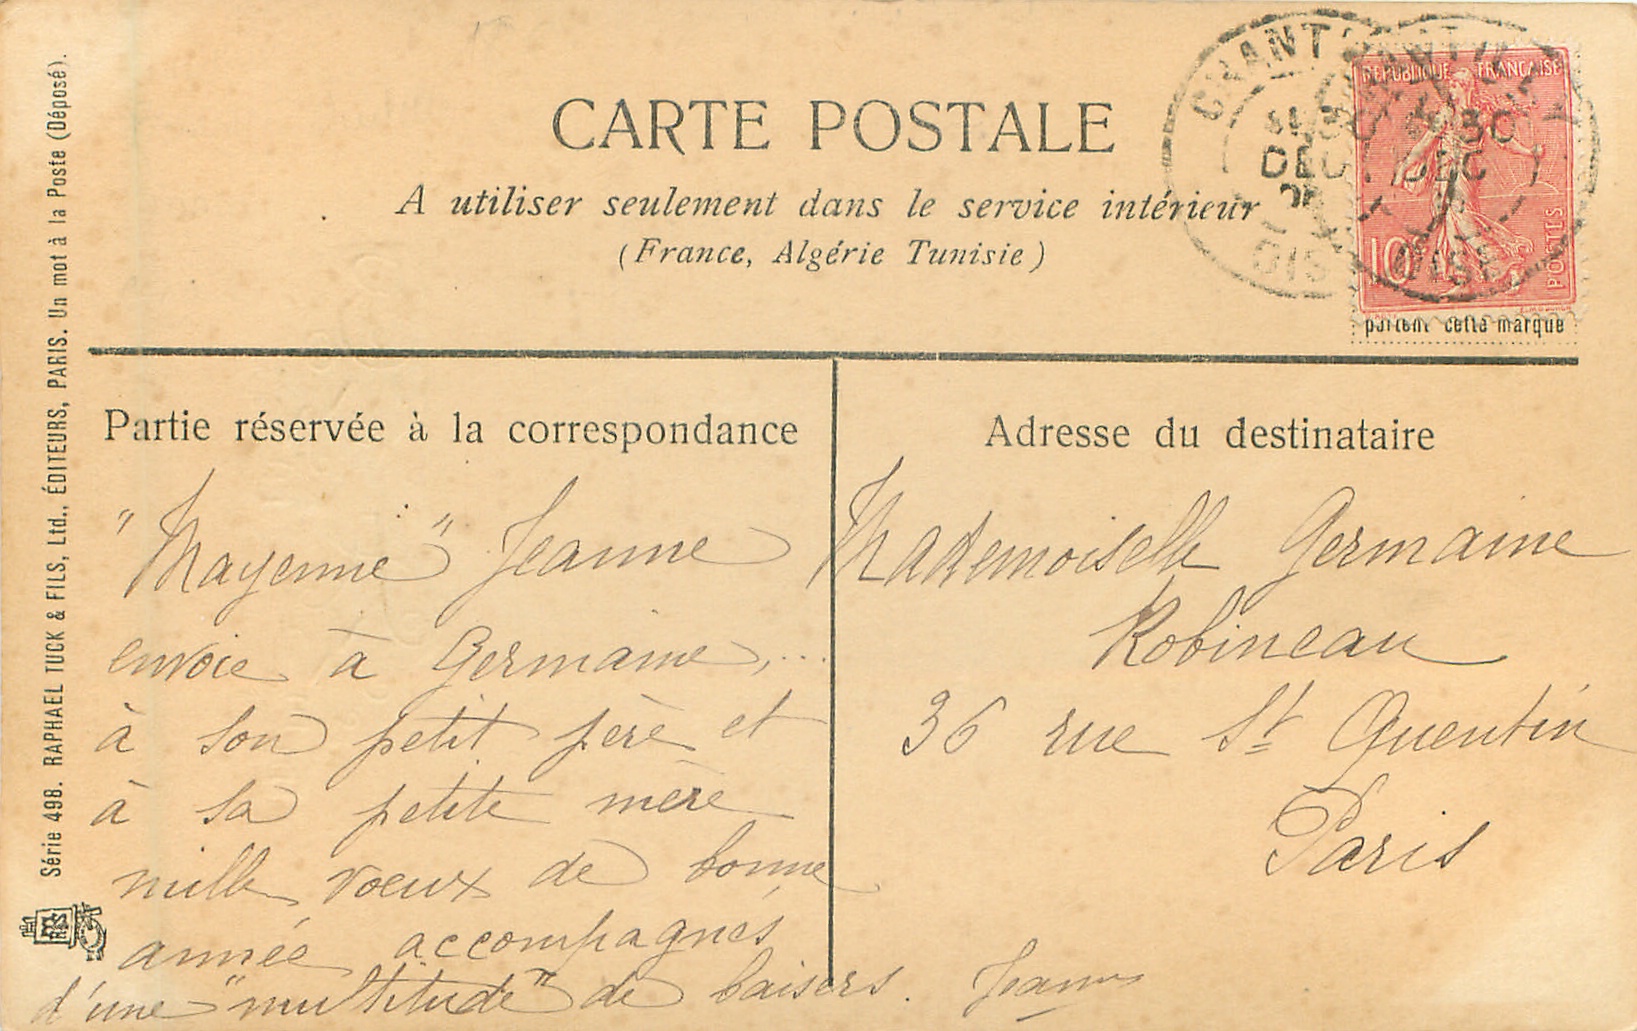 CARTE POSTALE
A utiliser seulement dans le service intérieur
(France, Algérie Tunisie)
REPUBLIQUE FRANÇAISE
10
POSTES
partent cette marque
CHANTILLY
30
DEC
05
OISE
Série 498. RAPHAEL TUCK & FILS, Ltd., ÉDITEURS, PARIS. Un mot à la Poste (Déposé).
Partie réservée à la correspondance
"Mayenne" Jeanne
envoie à Germaine,...
à son petit père et
à sa petite mère
mille voeux de bonne
année accompagnés
d'une "multitude" de baisers. Jeanne
Adresse du destinataire
Mademoiselle Germaine
Robineau
36 rue St Quentin
Paris